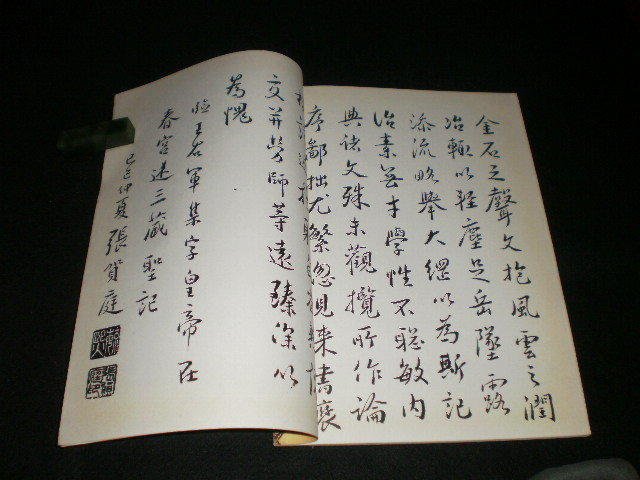 金石之聲文抱風雲之潤
治輒以輕塵足岳墜露
添流略舉大綱以為斯記
治素無才學性不聡敏內
典諸文殊未觀攬所作論
序鄙拙尤繁忽見来書褒
交并勞師等遠臻深以
為愧
臨王右軍集字皇帝在
春宮述三藏聖記
己巳仲夏張賀庭